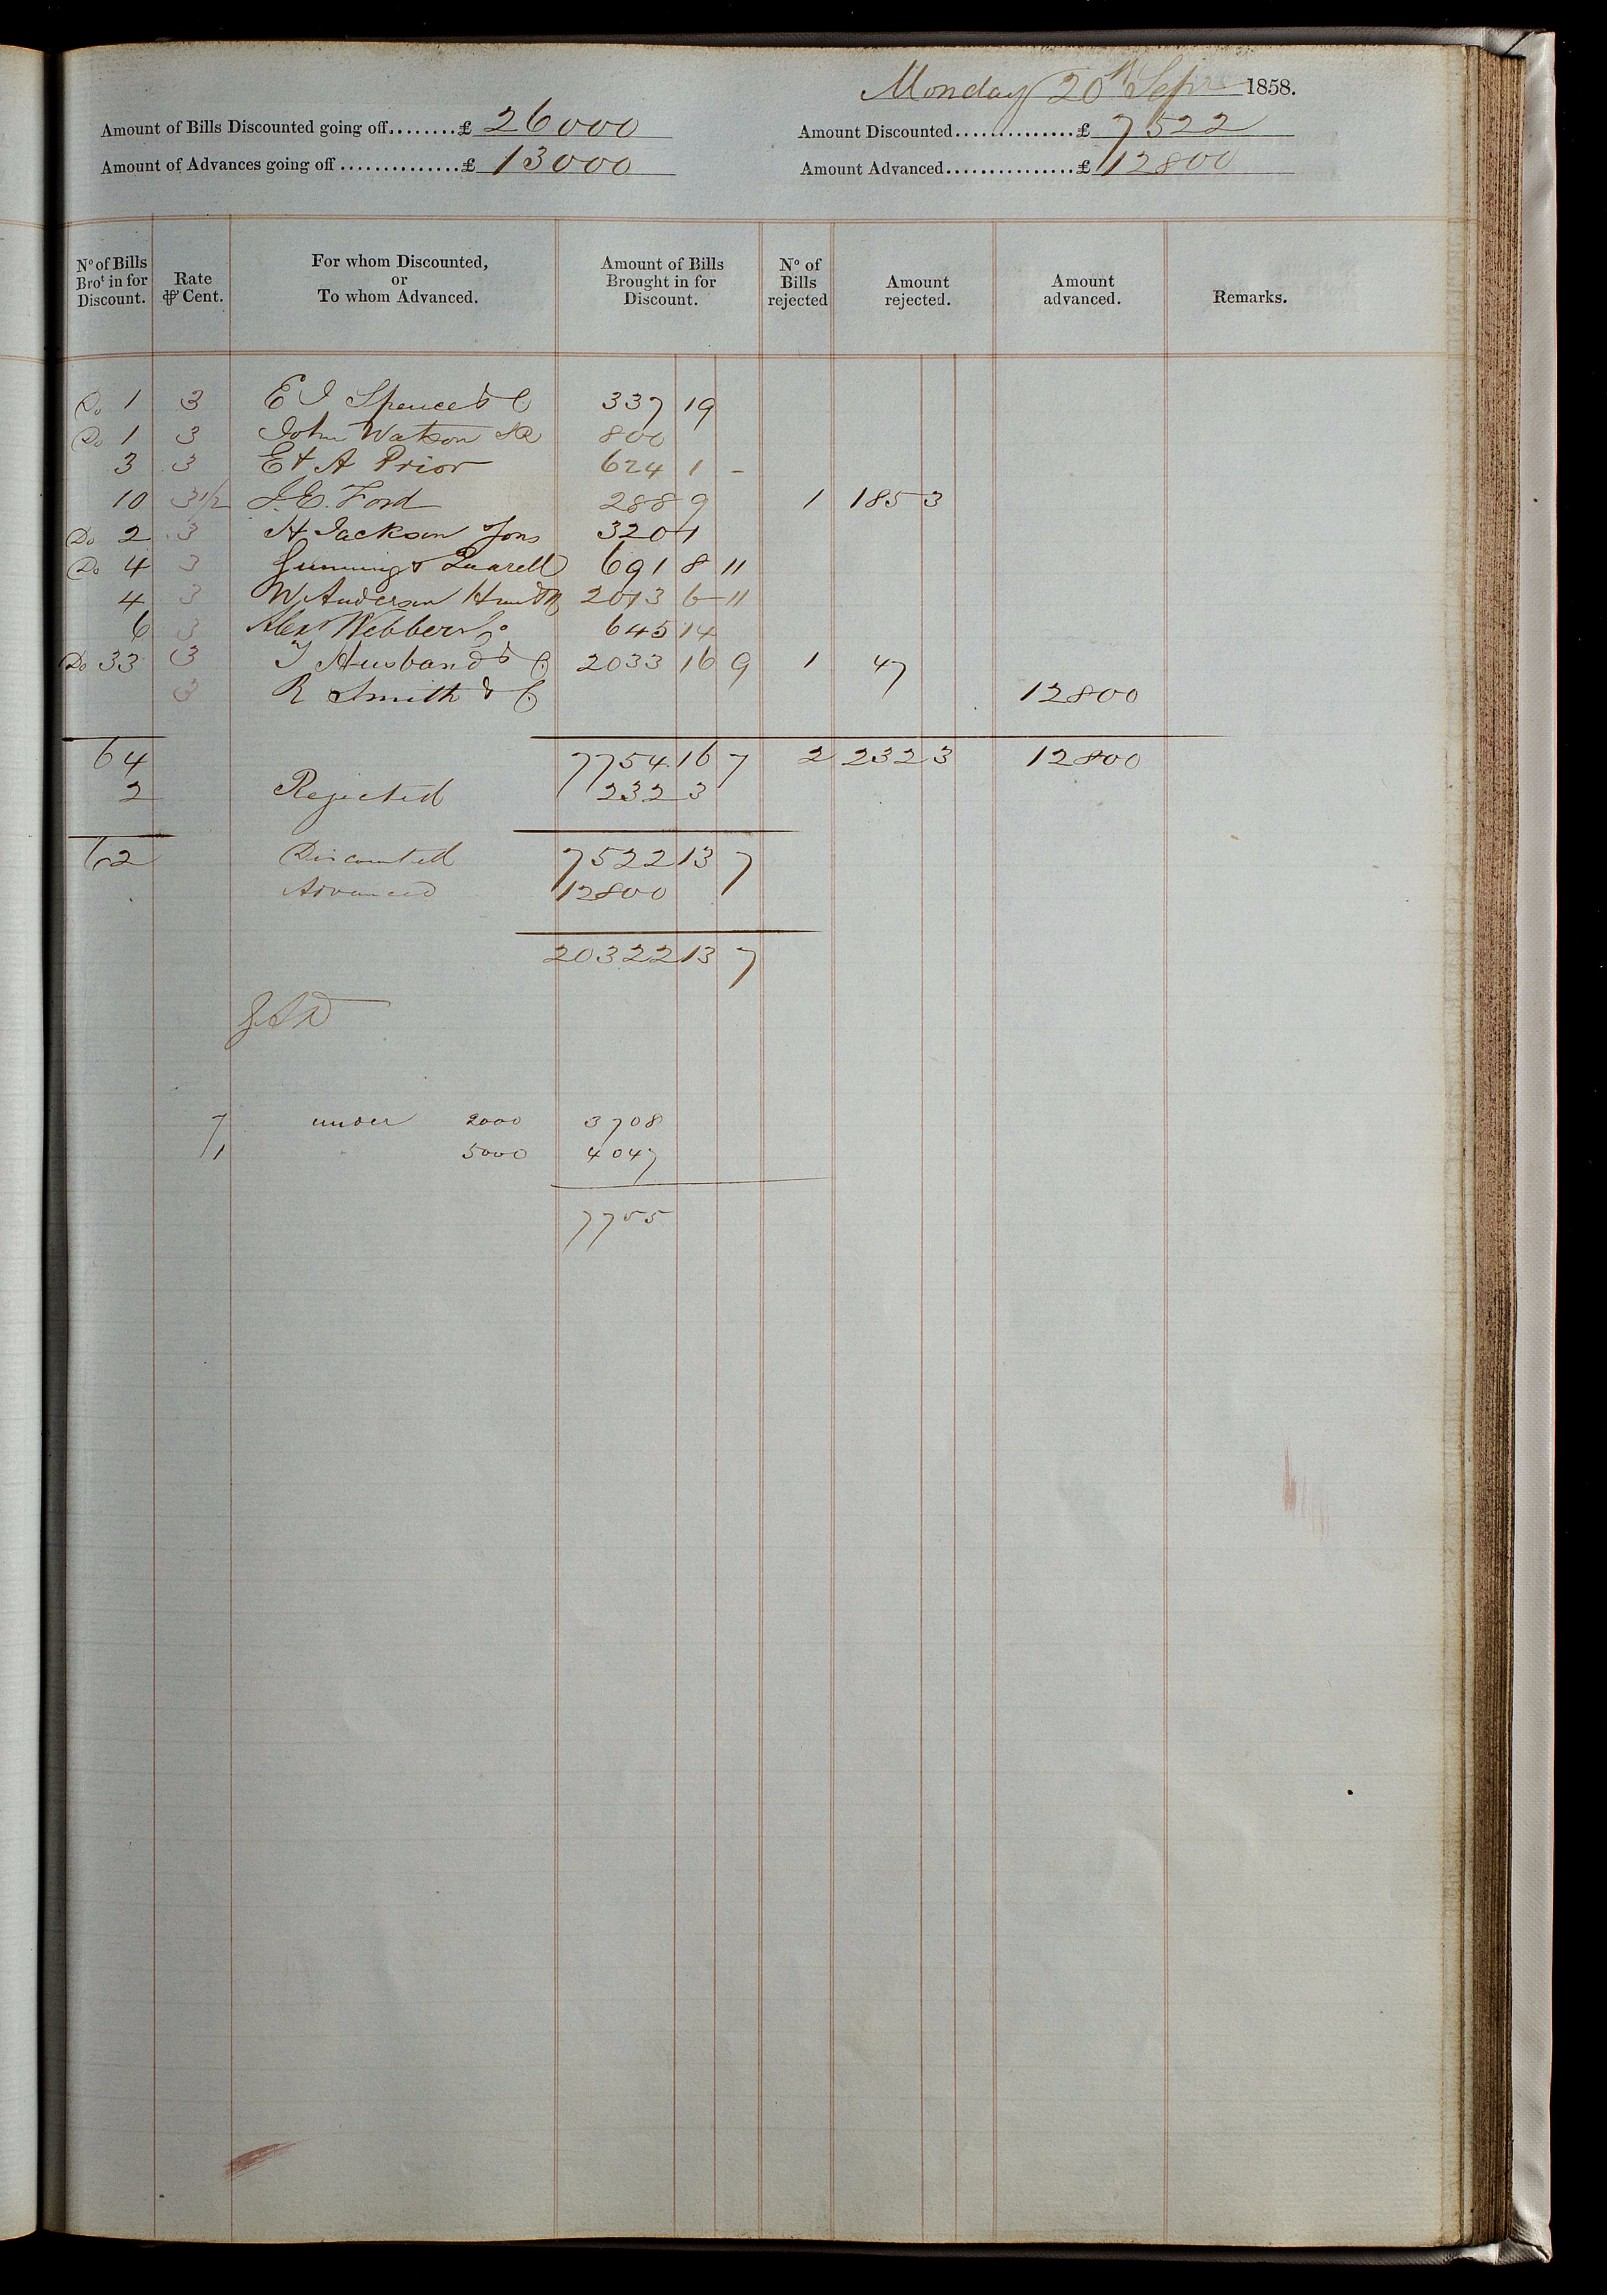 Monday 20th Sepr 1858.
Amount of Bills Discounted going off........£ 26000 Amount Discounted..............£ 7522
Amount of Advances going off..............£ 13000 Amount Advanced...............£ 12800
No of Bills Brot in for Discount. Rate ⅌ Cent. For whom Discounted, or To whom Advanced. Amount of Bills Brought in for Discount. No of Bills rejected Amount rejected. Amount advanced. Remarks.
Do 1 3 E J Spence & C 337 19
Do 1 3 John Watson 800
3 3 E & A Prior 624 1 –
10 3 1/2 J. E. Ford 288 9 1 185 3
Do 2 3 H Jackson Sons 320 1
Do 4 3 Gunning & Quarell 691 8 11
4 3 W Anderson 2013 6 11
6 3 Alexr Webber 645 14
Do 33 3 T Husband & C 2033 16 9 1 47
3 R Smith & C 12800
64 7754 16 7 2 232 3 12800
2 Rejected 232 3
62 Discounted 7522 13 7
Advanced 12800
20322 13 7
7 under 2000 3708
1 5000 4047
7755